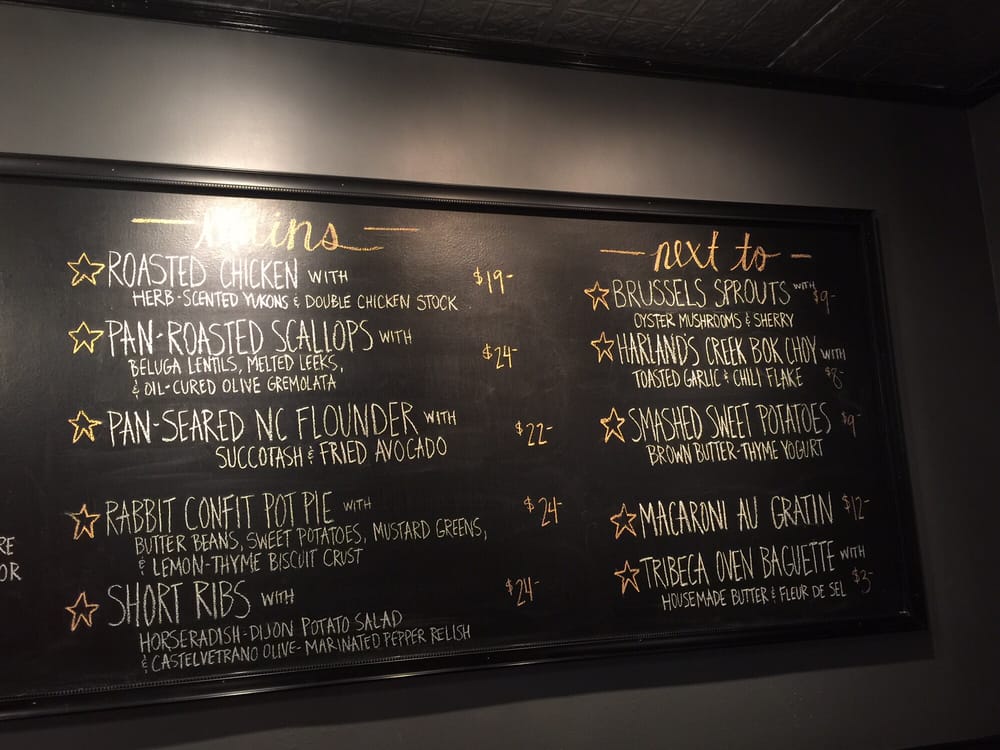 mains
ROASTED CHICKEN WITH $19-
HERB-SCENTED YUKONS & DOUBLE CHICKEN STOCK
PAN-ROASTED SCALLOPS WITH
BELUGA LENTILS, MELTED LEEKS, $24-
& OIL-CURED OLIVE GREMOLATA
PAN-SEARED NC FLOUNDER WITH $22-
SUCCOTASH & FRIED AVOCADO
RABBIT CONFIT POT PIE WITH $24-
BUTTER BEANS, SWEET POTATOES, MUSTARD GREENS,
& LEMON-THYME BISCUIT CRUST
SHORT RIBS WITH $24-
HORSERADISH-DIJON POTATO SALAD
& CASTELVETRANO OLIVE-MARINATED PEPPER RELISH
next to
BRUSSELS SPROUTS WITH $9-
OYSTER MUSHROOMS & SHERRY
HARLAND'S CREEK BOK CHOY WITH
TOASTED GARLIC & CHILI FLAKE $8-
SMASHED SWEET POTATOES $9-
BROWN BUTTER-THYME YOGURT
MACARONI AU GRATIN $12-
TRIBECA OVEN BAGUETTE WITH
HOUSEMADE BUTTER & FLEUR DE SEL $3-